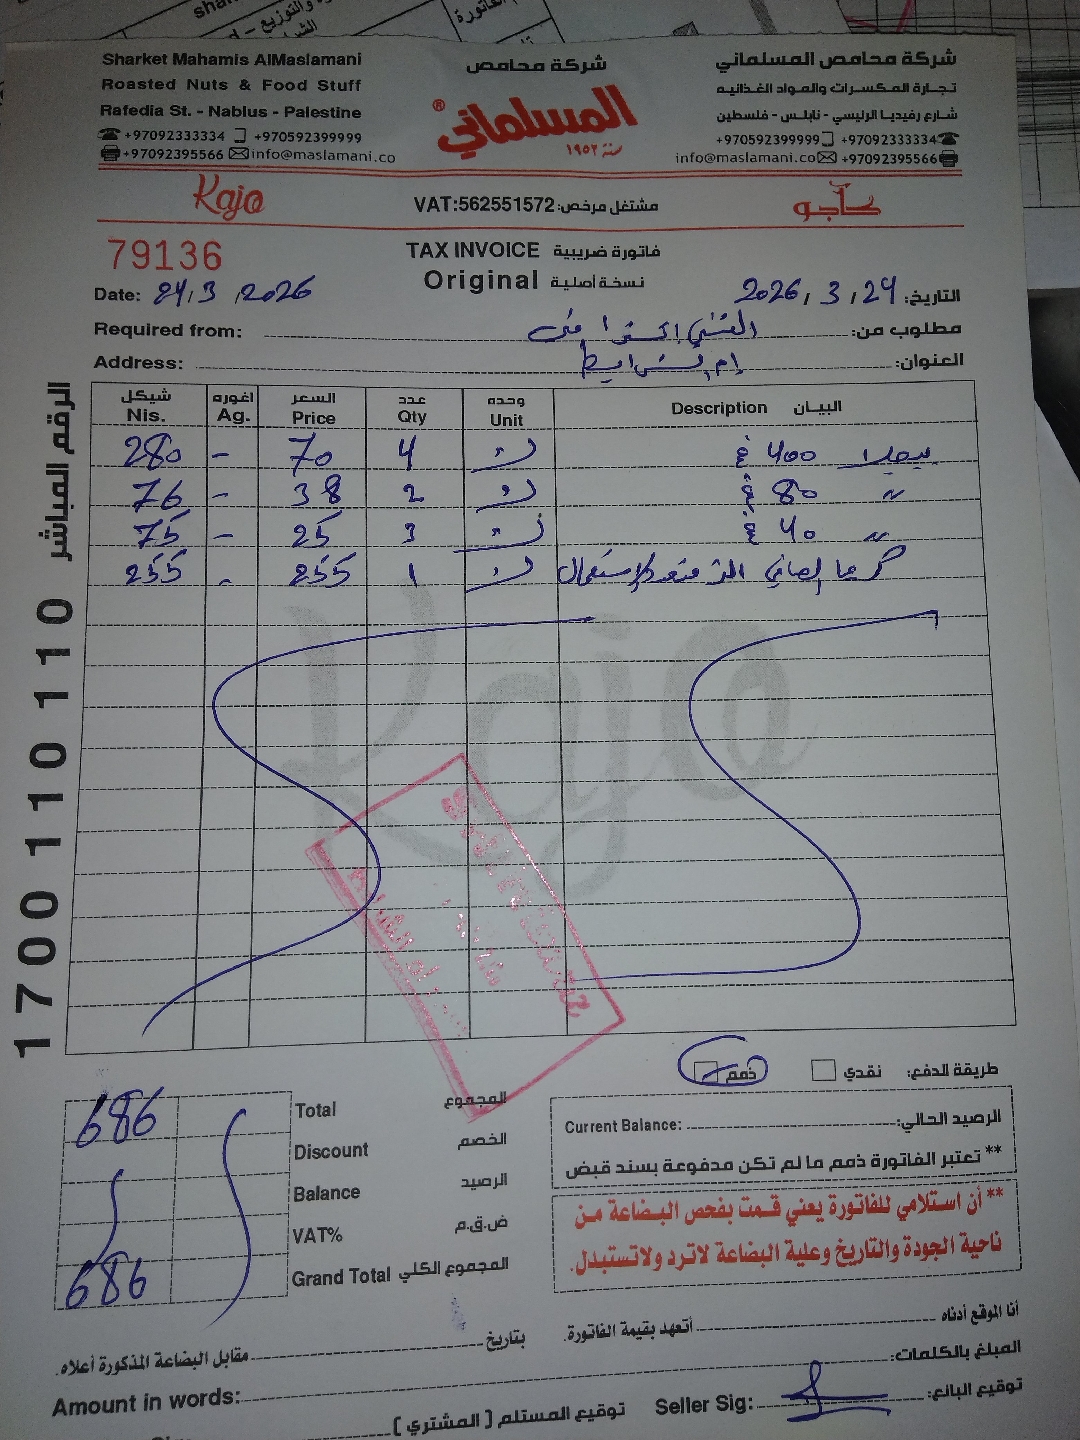 Sharket Mahamis AlMaslamani
Roasted Nuts & Food Stuff
Rafedia St. - Nablus - Palestine
+97092333334 +970592399999
+97092395566 info@maslamani.co
شركة محامص
المسلماني
®
سنة ١٩٥٢
شركة محامص المسلماني
تجارة المكسرات والمواد الغذائيه
شارع رفيديا الرئيسي - نابلس - فلسطين
+970592399999 +97092333334
info@maslamani.co +97092395566
Kajo
VAT:562551572 مشتغل مرخص:
كاجو
79136
TAX INVOICE فاتورة ضريبية
Original نسخة أصلية
Date: 24/3/2026
التاريخ: 2026/3/24
Required from: مطلوب من:
Address: ام الشرايط العنوان:
شيكل اغوره السعر عدد وحده
Nis. Ag. Price Qty Unit Description البيان
280 - 70 4 400 غ
76 - 38 2 80 غ "
75 - 25 3 40 غ "
255 - 255 1
Kajo
الرقم المباشر
1700 110 110
طريقة الدفع: نقدي ذمم
686 Total المجموع
Discount الخصم
Balance الرصيد
VAT% ض.ق.م
686 Grand Total المجموع الكلي
Current Balance: الرصيد الحالي:
** تعتبر الفاتورة ذمم ما لم تكن مدفوعة بسند قبض
** أن استلامي للفاتورة يعني قمت بفحص البضاعة من
ناحية الجودة والتاريخ وعلية البضاعة لاترد ولاتستبدل.
أنا الموقع أدناه أتعهد بقيمة الفاتورة.
بتاريخ مقابل البضاعة المذكورة أعلاه.
Amount in words: المبلغ بالكلمات:
توقيع المستلم (المشتري) Seller Sig: توقيع البائع: